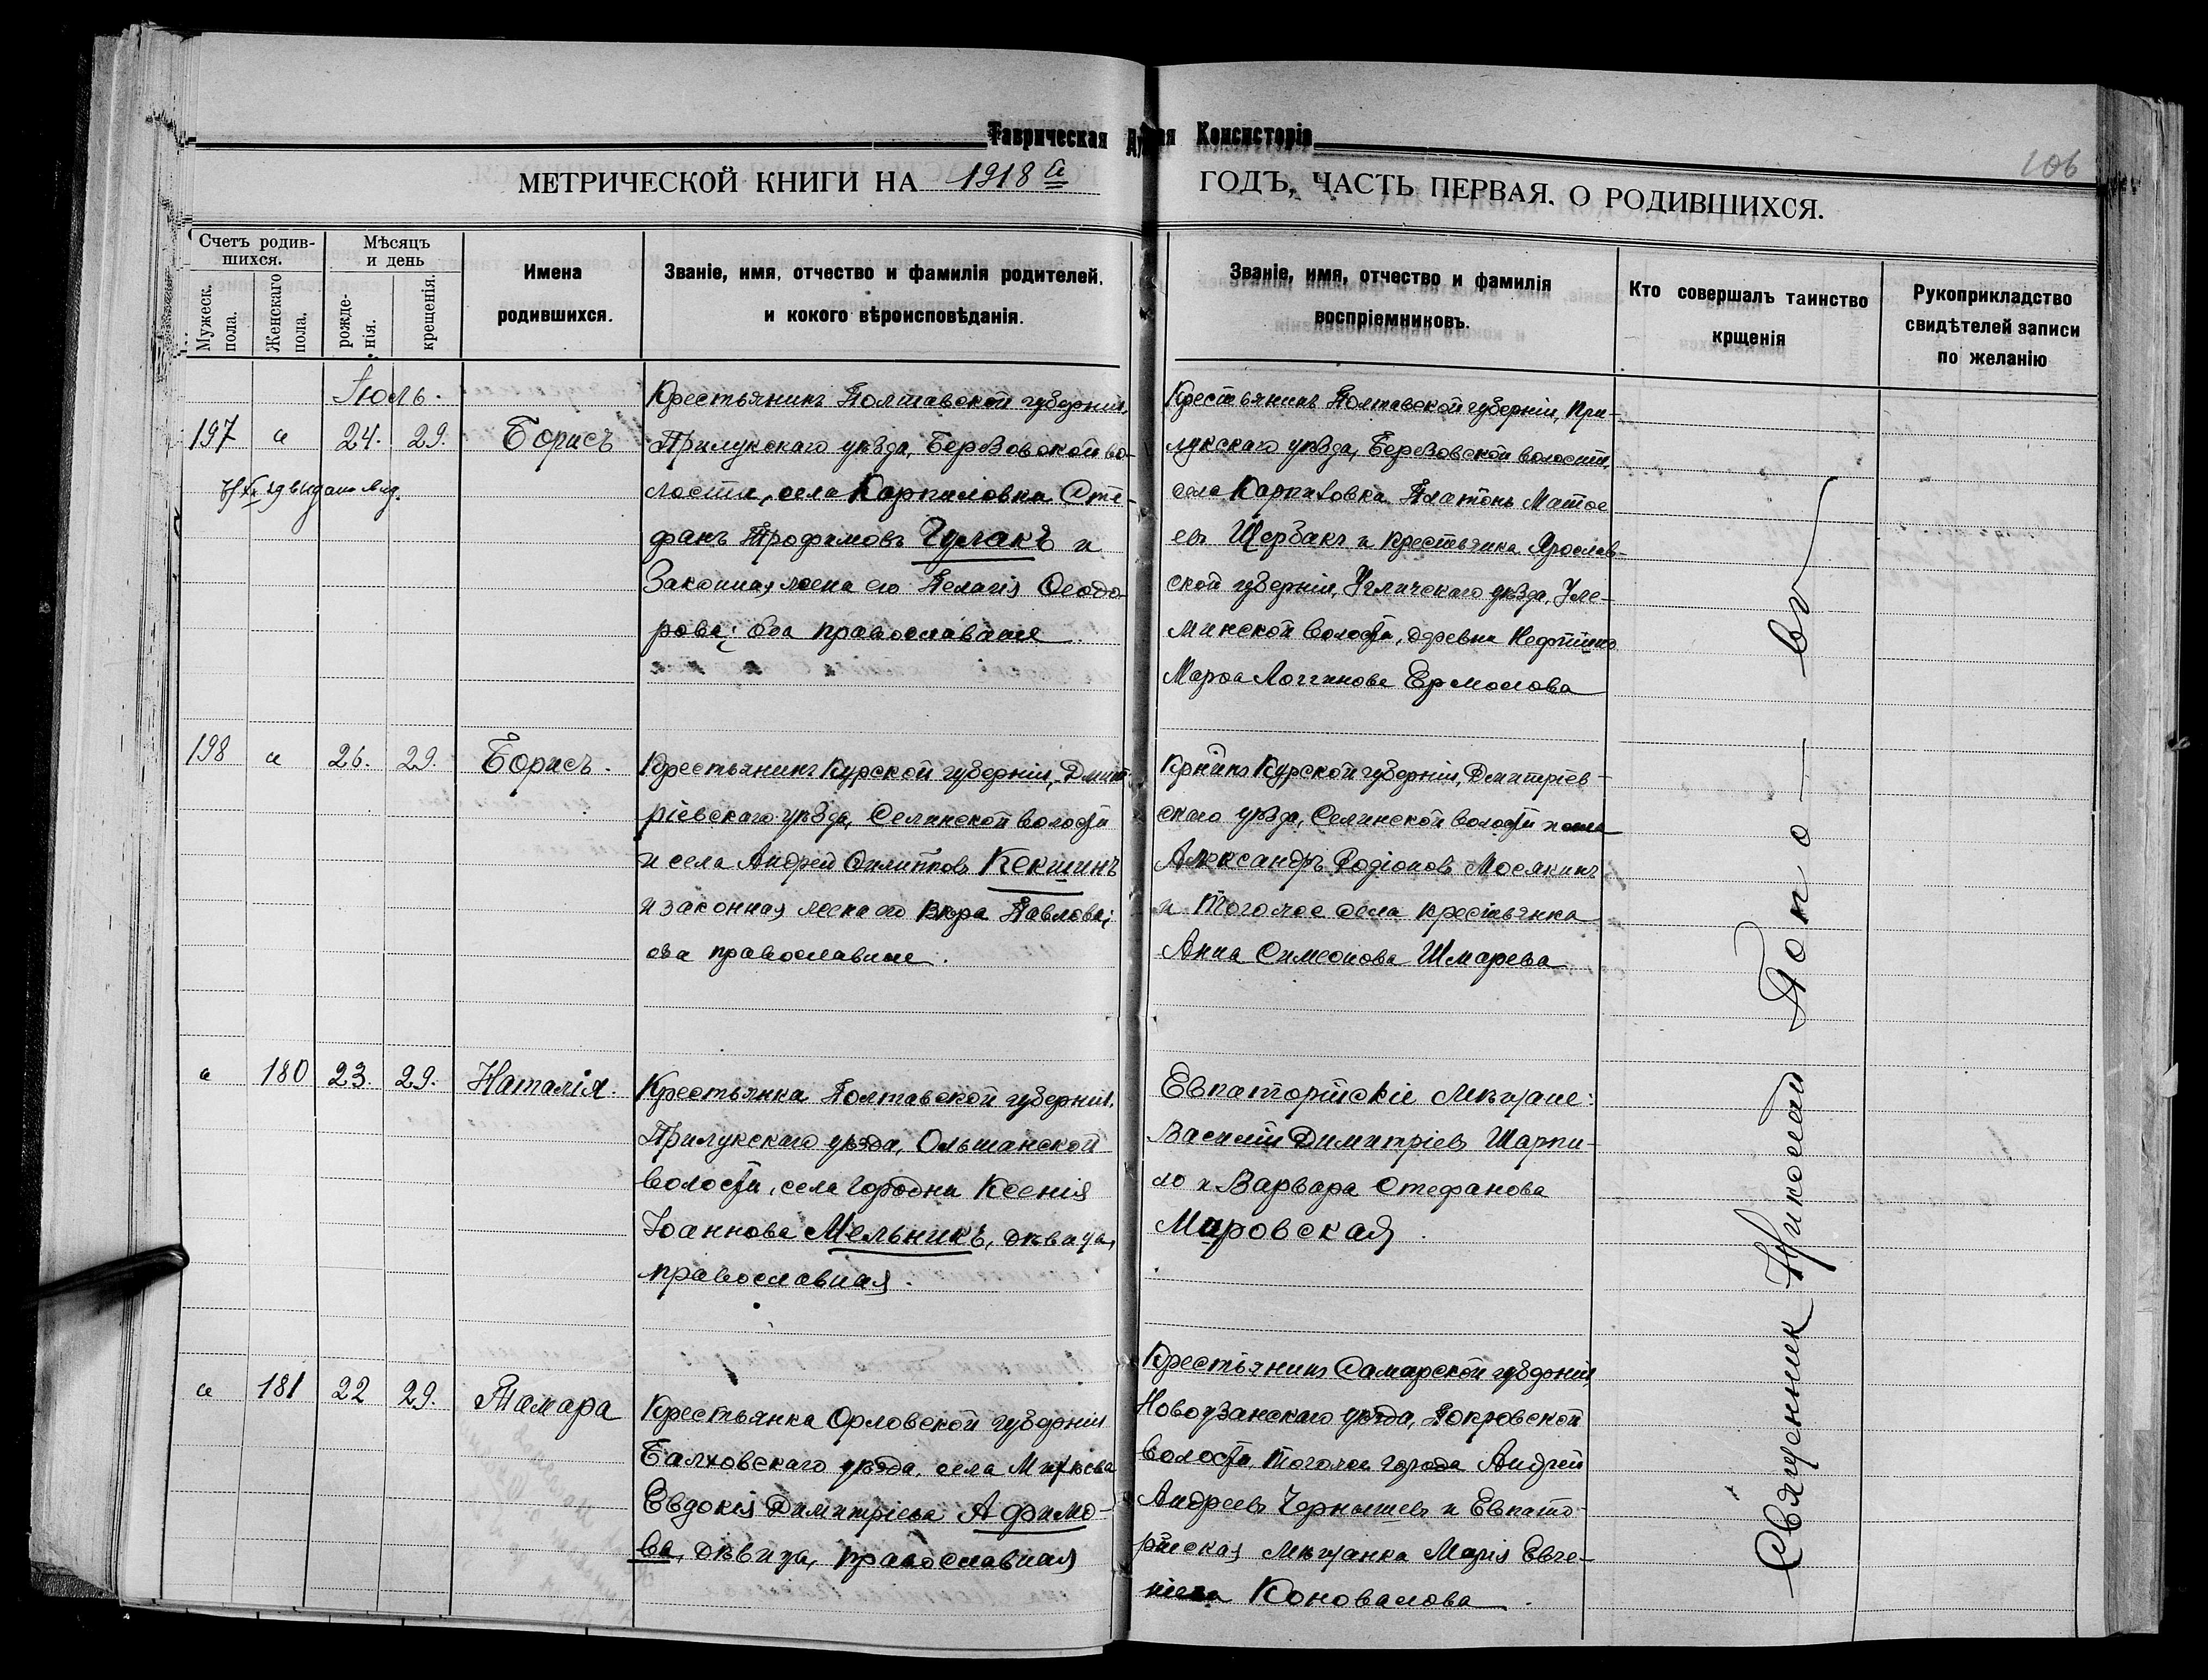 Таврическая Консисторія
106
МЕТРИЧЕСКОЙ КНИГИ НА 1918 й ГОДЪ, ЧАСТЬ ПЕРВАЯ. О РОДИВШИХСЯ.
Счетъ родив-
шихся.
Мужеск.
пола.
Женскаго
пола.
Мѣсяцъ
и день
рожде-
нія.
крещенія.
Имена
родившихся.
Званіе, имя, отчество и фамилія родителей,
и кокого вѣроисповѣданія.
Званіе, имя, отчество и фамилія
воспріемниковъ.
Кто совершалъ таинство
крщенія
Рукоприкладство
свидѣтелей записи
по желанію
Іюль.
197 " 24. 29. Борисъ
Крестьянинъ Полтавской губерніи,
Прилукскаго уѣзда, Березовской во-
лости, села Карпиловка Сте-
фанъ Трофимовъ Гулакъ и
Законная жена его Пелагія Ѳеодо-
рова; оба православные
Крестьянинъ Полтавской губерніи, При-
лукскаго уѣзда, Березовской волости,
села Карпиловка Платонъ Матѳе
евъ Щербакъ и крестьянка Ярослав-
ской губерніи, Угличскаго уѣзда, Уле-
минской волости, деревни
Марѳа Логгинова Ермолова
198 " 26. 29. Борисъ.
Крестьянинъ Курской губерніи, Дмит
ріевскаго уѣзда, Селинской волости
и села Андрей Филипповъ Кекшинъ
и законная жена его Вѣра Павлова;
оба православные.
Кр-нинъ Курской губерніи, Дмитріев-
скаго уѣзда, Селинской волости и села
Александръ Родіоновъ Мосякинъ
и тогоже села крестьянка
Анна Симеонова Шмарева
" 180 23. 29. Наталія.
Крестьянка Полтавской губерніи,
Прилукскаго уѣзда, Ольшанской
волости, села Городни Ксенія
Іоаннова Мельникъ, дѣвица,
православная.
Евпаторійскіе мѣщане:
Василій Димитріевъ Шарпи-
ло и Варвара Стефанова
Мировская.
" 181 22 29. Тамара
Крестьянка Орловской губерніи
Балховскаго уѣзда, села
Евдокія Димитріева Афимо-
ва, дѣвица, православная
Крестьянинъ Самарской губерніи,
Новоузанскаго уѣзда, Покровской
волости, тогоже города Андрей
Андреевъ Чернышевъ и Евпато-
рійская мѣщанка Марія Евге-
ніева Коновалова.
Священник Николай Попо — въ